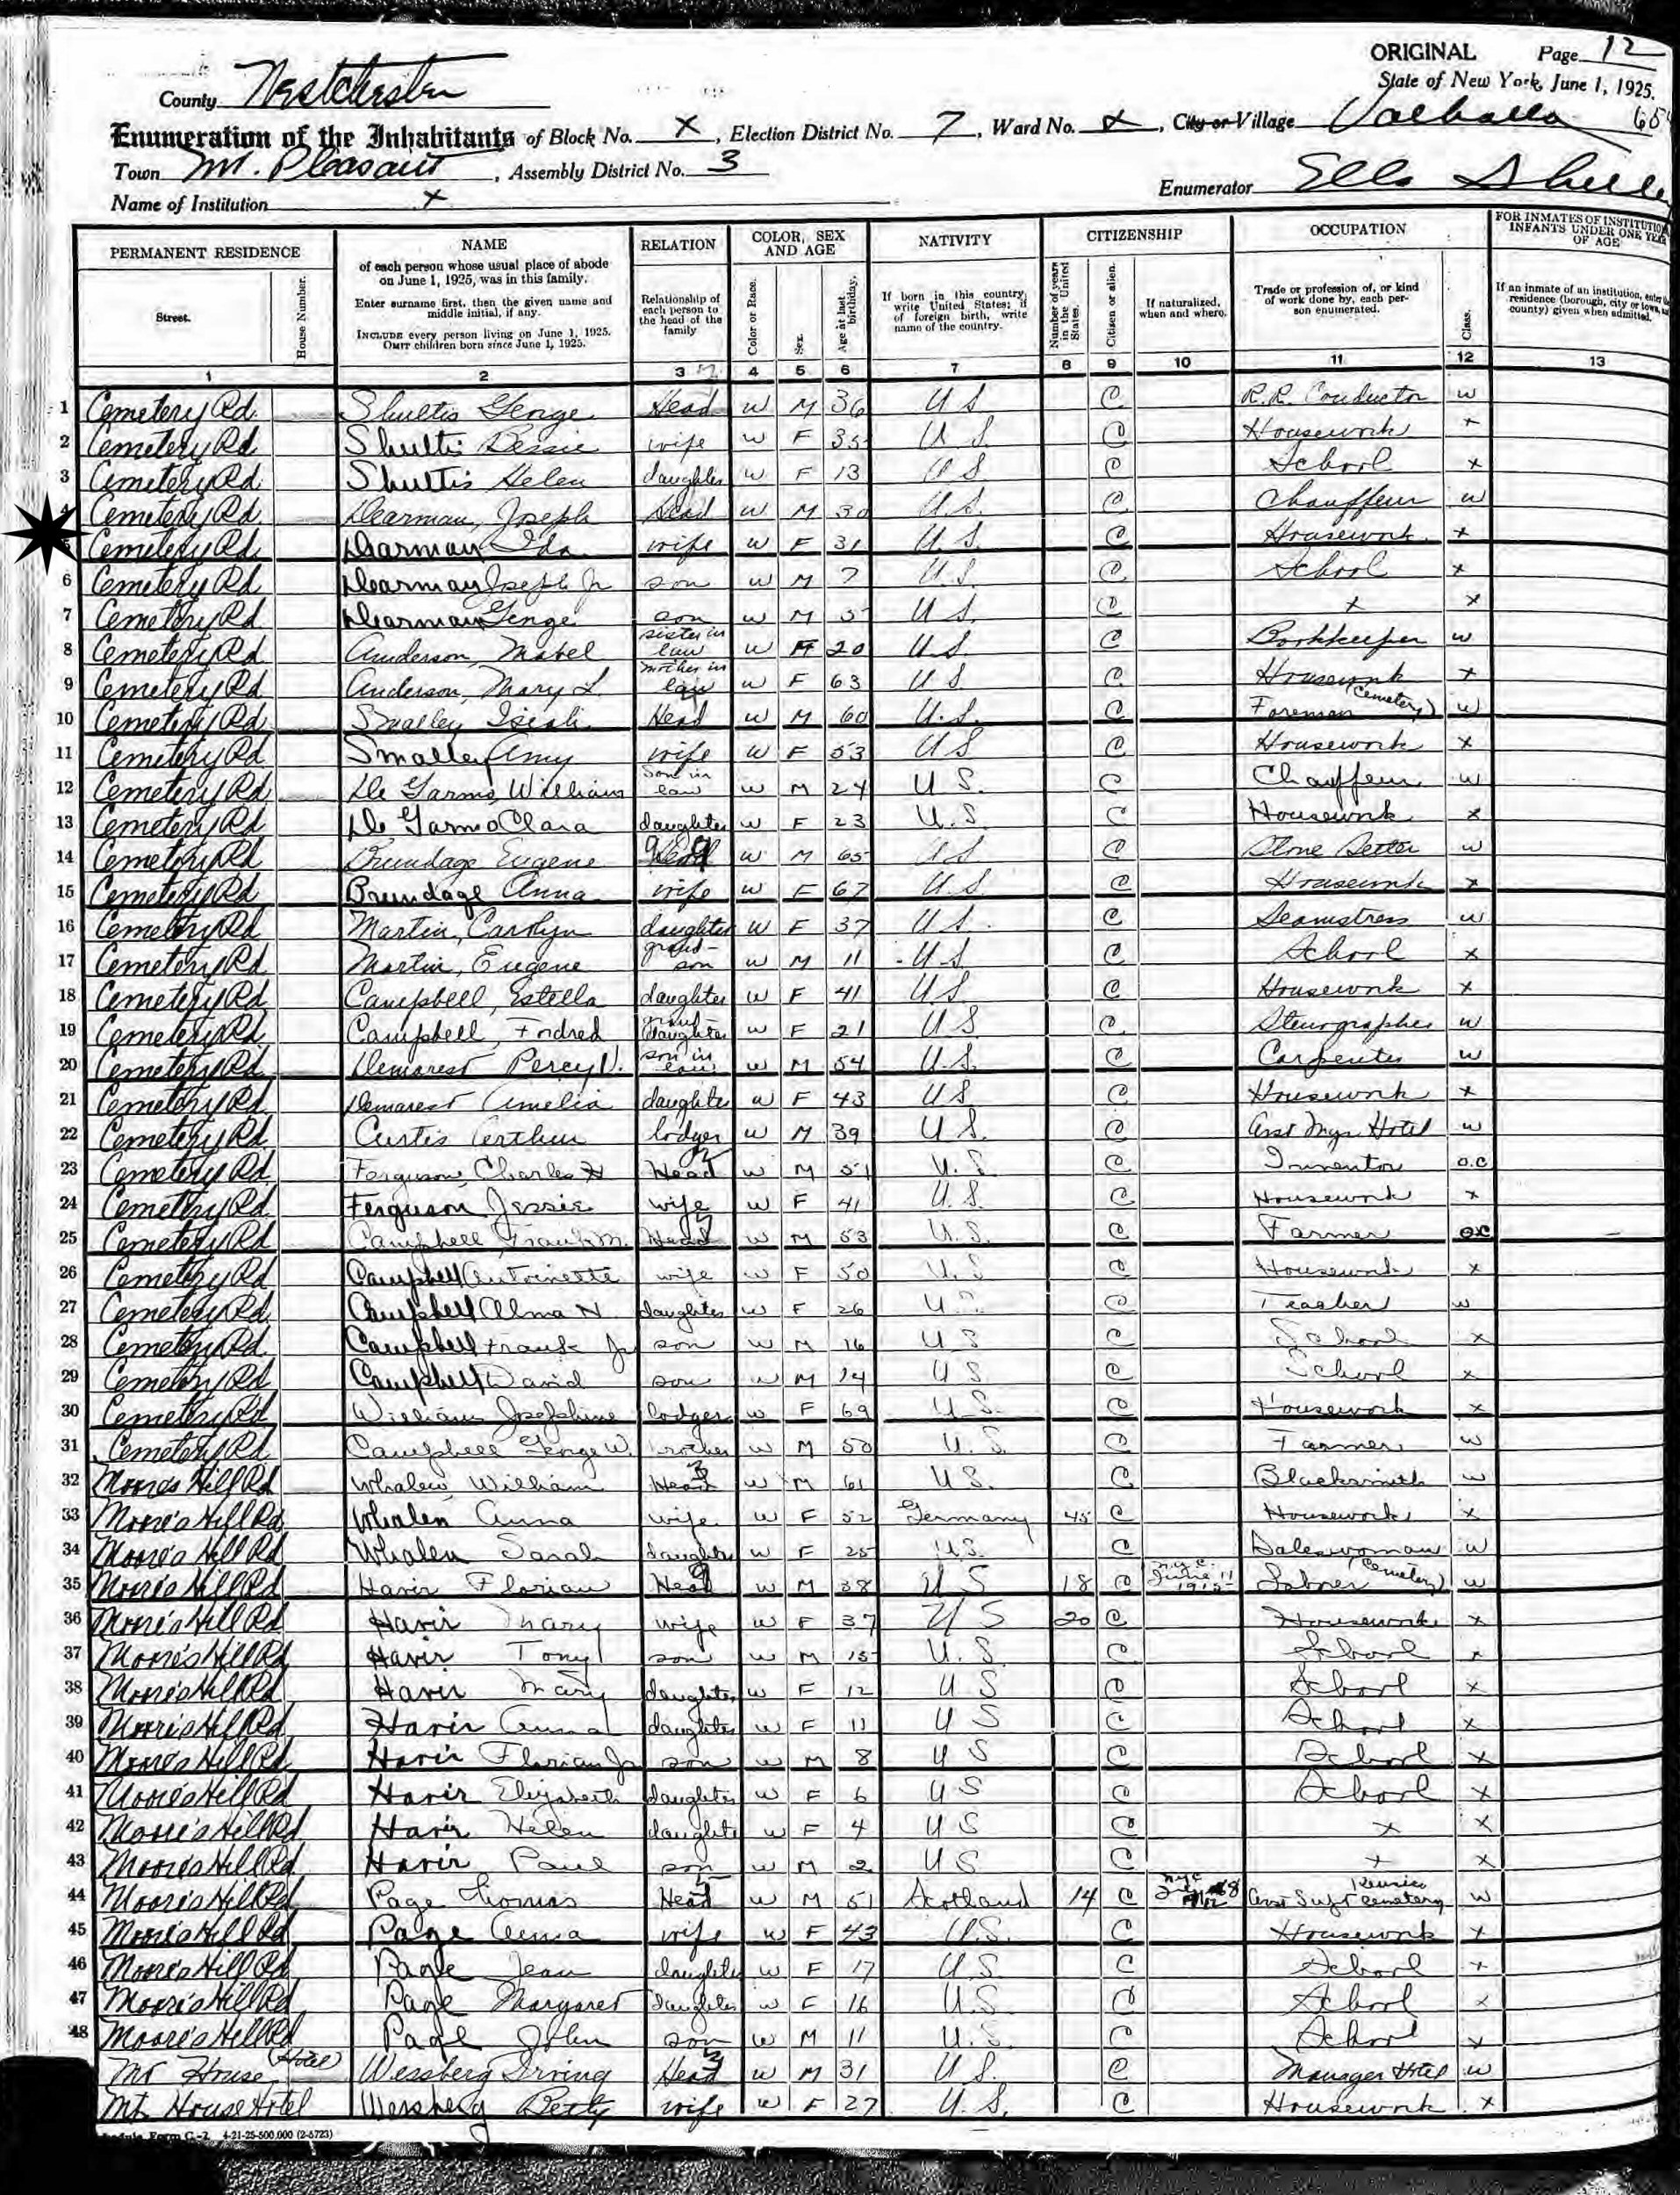 ORIGINAL Page 12
State of New York, June 1, 1925.
County Westchester
Enumeration of the Inhabitants of Block No. X, Election District No. 7, Ward No. X, City or Village Valhalla
Town Mt. Pleasant, Assembly District No. 3
Enumerator Ella
Name of Institution X
PERMANENT RESIDENCE
Street.
House Number.
NAME
of each person whose usual place of abode on June 1, 1925, was in this family.
Enter surname first, then the given name and middle initial, if any.
INCLUDE every person living on June 1, 1925. OMIT children born since June 1, 1925.
RELATION
Relationship of each person to the head of the family
COLOR, SEX AND AGE
Color or Race.
Sex.
Age at last birthday.
NATIVITY
If born in this country, write United States; if of foreign birth, write name of the country.
CITIZENSHIP
Number of years in the United States.
Citizen or alien.
If naturalized, when and where.
OCCUPATION
Trade or profession of, or kind of work done by, each person enumerated.
Class.
FOR INMATES OF INSTITUTION INFANTS UNDER ONE YEAR OF AGE
If an inmate of an institution, enter residence (borough, city or town, county) given when admitted.
1 2 3 4 5 6 7 8 9 10 11 12 13
1 Cemetery Rd Shultis George Head W M 36 U S C R.R. Conductor W
2 Cemetery Rd Shultis Bessie wife W F 35 U S. C Housework X
3 Cemetery Rd Shultis Helen daughter W F 13 U S C School X
4 Cemetery Rd Dearman, Joseph Head W M 30 U S. C Chauffeur W
5 Cemetery Rd Dearman Ida wife W F 31 U. S. C Housework X
6 Cemetery Rd Dearman Joseph Jr son W M 7 U S. C School X
7 Cemetery Rd Dearman George son W M 5 U S. C X X
8 Cemetery Rd Anderson, Mabel sister in law W F 20 U S. C Bookkeeper W
9 Cemetery Rd Anderson, Mary L. mother in law W F 63 U S C Housework X
10 Cemetery Rd Smalley Head W M 60 U.S. C Foreman (Cemetery) W
11 Cemetery Rd Smalley Amy wife W F 53 U S C Housework X
12 Cemetery Rd De Garmo, William son in law W M 24 U S. C Chauffeur W
13 Cemetery Rd De Garmo Clara daughter W F 23 U.S. C Housework X
14 Cemetery Rd Brundage Eugene Head W M 65 U S C Stone Setter W
15 Cemetery Rd Brundage Anna wife W F 67 U S C Housework X
16 Cemetery Rd Martin, Carolyn daughter W F 37 U S. C Seamstress W
17 Cemetery Rd Martin, Eugene grand-son W M 11 U S C School X
18 Cemetery Rd Campbell, Estella daughter W F 41 U S. C Housework X
19 Cemetery Rd Campbell, grand-daughter W F 21 U S C Stenographer W
20 Cemetery Rd Demarest Percy V. son in law W M 54 U.S. C Carpenter W
21 Cemetery Rd Demarest Amelia daughter W F 43 U S C Housework X
22 Cemetery Rd Curtis Arthur lodger W M 39 U S. C Asst Mgr Hotel W
23 Cemetery Rd Ferguson, Charles H Head W M 51 U. S C Inventor O.C
24 Cemetery Rd Ferguson Jessie wife W F 41 U.S. C Housework X
25 Cemetery Rd Campbell Frank M. Head W M 53 U.S. C Farmer OC
26 Cemetery Rd Campbell Antoinette wife W F 50 U.S C Housework X
27 Cemetery Rd Campbell Alma H daughter W F 26 U.S. C Teacher W
28 Cemetery Rd. Campbell Frank Jr son W M 16 U S C School X
29 Cemetery Rd Campbell David son W M 14 U S C School X
30 Cemetery Rd William Josephine lodger W F 69 U.S. C Housework X
31 Cemetery Rd Campbell George W. brother W M 50 U.S. C Farmer W
32 Moore's Hill Rd Whalen William Head W M 61 U S. C Blacksmith W
33 Moore's Hill Rd Whalen Anna wife W F 52 Germany 45 C Housework X
34 Moore's Hill Rd Whalen Sarah daughter W F 25 U.S. C Saleswoman W
35 Moore's Hill Rd Havir Florian Head W M 38 U S 18 C N.Y.C. June 11 1915 Laborer (Cemetery) W
36 Moore's Hill Rd Havir Mary wife W F 37 U S 20 C Housework X
37 Moore's Hill Rd Havir Tony son W M 15 U. S. C School X
38 Moore's Hill Rd Havir Mary daughter W F 12 U S C School X
39 Moore's Hill Rd Havir Anna daughter W F 11 U S C School X
40 Moore's Hill Rd Havir Florian Jr son W M 8 U S C School X
41 Moore's Hill Rd Havir Elizabeth daughter W F 6 U S C School X
42 Moore's Hill Rd Havir Helen daughter W F 4 U S C X X
43 Moore's Hill Rd Havir Paul son W M 2 U S C X X
44 Moore's Hill Rd Page Thomas Head W M 51 Scotland 14 C NYC Asst Supt Kensico Cemetery W
45 Moore's Hill Rd Page Anna wife W F 43 U.S. C Housework X
46 Moore's Hill Rd Page Jean daughter W F 17 U S. C School X
47 Moore's Hill Rd Page Margaret daughter W F 16 U.S C School X
48 Moore's Hill Rd Page John son W M 11 U.S. C School X
Mt House (Hotel) Wessberg Irving Head W M 31 U S. C Manager Hotel W
Mt. House Hotel Wessberg Betty wife W F 27 U.S. C Housework X
Form C-2 4-21-25-500,000 (2-5723)